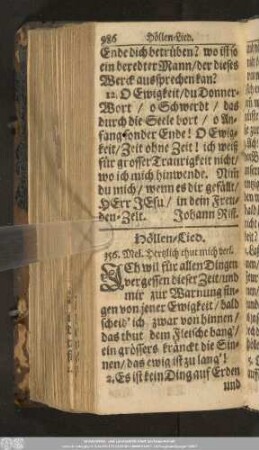 986 Höllen-Lied.
Ende dich betrüben? wo ist so
ein beredter Mann/der dieses
Werck aussprechen kan?
12. O Ewigkeit/du Donner-
Wort / o Schwerdt / das
durch die Seele bort / o An-
fang sonder Ende! O Ewig-
keit/Zeit ohne Zeit! ich weiß
für grosser Traurigkeit nicht/
wo ich mich hinwende. Nim̃
du mich / wenn es dir gefält/
HErr JEsu / in dein Freu-
den-Zelt. Johann Rist.
Höllen-Lied.
356. Mel. Hertzlich thut mich verl.
ICh wil für allen Dingen
vergessen dieser Zeit/und
mir zur Warnung sin-
gen von jener Ewigkeit / bald
scheid' ich zwar von hinnen/
das thut dem Fleische bang'/
ein grössers kränckt die Sin-
nen/das ewig ist zu lang'!
2. Es ist kein Ding auf Erden
und